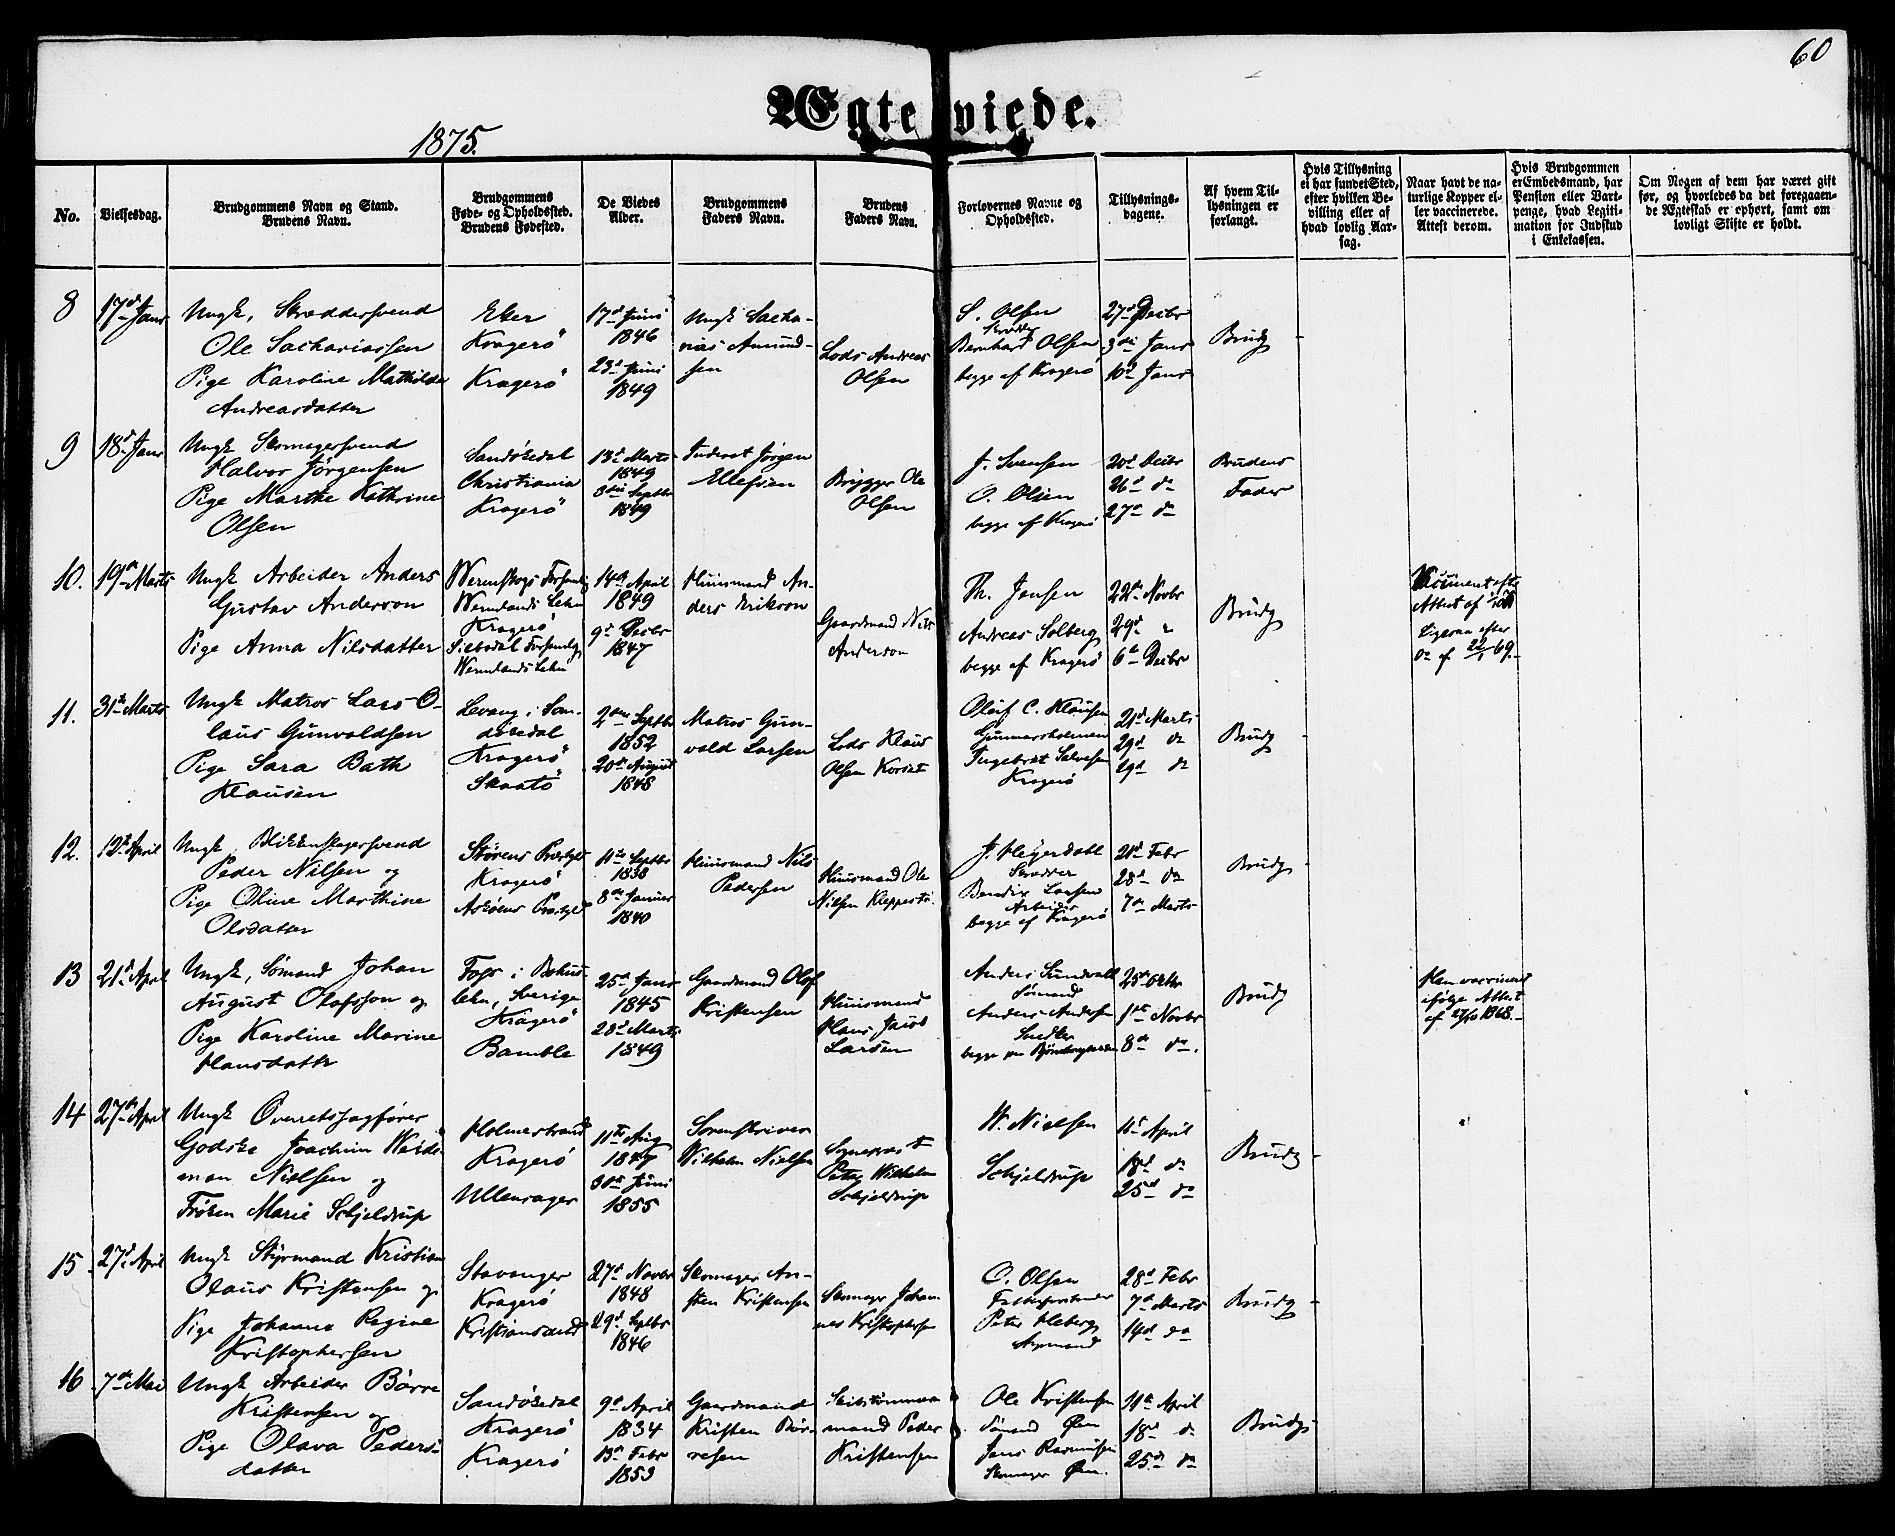 60
Ægteviede.
1875.
No.
Vielsesdag.
Brudgommens Navn og Stand.
Brudens Navn.
Brudgommens
Føde- og Opholdssted.
Brudens Fødested.
De Viedes
Alder.
Brudgommens
Faders Navn.
Brudens
Faders Navn.
Forlovernes Navne og
Opholdssted.
Tillysnings-
dagene.
Af hvem Til-
lysningen er
forlangt.
Hvis Tillysning
ei har fundet Sted,
efter hvilken Be-
villing eller af
hvad lovlig Aar-
sag.
Naar havt de na-
turlige Kopper el-
ler vaccinerede.
Attest derom.
Hvis Brudgommen
er Embedsmand, har
Pension eller Vart-
penge, hvad Legiti-
mation for Indskud
i Enkekassen.
Om Nogen af dem har været gift
før, og hvorledes da det foregaaen-
de Ægteskab er ophørt, samt om
lovligt Skifte er holdt.
8
17d Janr
Ungk. Skræddersvend
Ole Sachariassen
Pige Karoline Mathilde
Andreasdatter
Eker
Kragerö
Kragerö
17d Juni
1846
23d Juni
1849
Ungk Sacha-
rias Amund-
sen
Lods Andreas
Olsen
S. Olsen
Skrædder
Bernhard Olsen
begge af Kragerö
27d Decbr
3die Janr
10d Janr
Brudg
9
18d Janr
Ungk Skomagersvend
Halvor Jörgensen
Pige Marthe Kathrine
Olsen
Sandökedal
Christiania
Kragerö
13d Marts
1849
3die Septbr
1849
Inderst Jörgen
Ellefsen
Brygger Ole
Olsen
J. Svensen
O. Olsen
begge af Kragerö
20d Decbr
26d do
27d do
Brudens
Fader
10.
19de Marts
Ungk Arbeider Anders
Gustav Anderson
Pige Anna Nilsdatter
Wermskogs Forsamlg
Wermlands Lehn
Kragerö
Forsamlg
Wermlands Lehn
14d April
1849
9d Decbr
1847
Huusmand An-
ders Erikson
Gaardmand Nils
Anderson
Th. Jensen
Andreas Solberg
begge af Kragerö
22de Novbr
29d "
6te Decbr
Brudg
Attest af
Ligesaa efter
do af 22/1 69.
11.
31te Marts
Ungk Matros Lars O-
laus Gunvaldsen
Pige Sara Bath
Klausen
Levang i San-
dökedal
Kragerö
Skaatö
2den Septbr
1852
20de August
1848
Matros Gun-
vald Larsen
Lods Klaus
Olsen Korset
Oluf C. Klausen
Gunnarsholmen
Ingebret Salvesen
Kragerö
21d Marts
29d do
29d do
Brudg
12.
12te April
Ungk Blikkenslagersvend
Peder Nilsen og
Pige Oline Marthine
Olsdatter
Störens Præstgld
Kragerö
Asköens Præstgld
11te Septbr
1838
8de Januar
1840
Huusmand Nils
Pedersen
Huusmand Ole
Nilsen Kleppestö.
J. Heyerdahl
Skrædder
Bendix Larsen
Arbeider
begge af Kragerö
21d Febr
28d do
7de Marts
Brudg
13
21d April
Ungk. Sömand Johan
August Olafsson og
Pige Karoline Marine
Hansdattr
i Bohus-
lehn, Sverige
Kragerö
Bamble
25de Janr
1845
28d Marts
1849
Gaardmand Olof
Kristensen
Huusmand
Hans Jacob
Larsen
Anders Sundvall
Sömand
Anders Andersen
Snedker
25de Oktbr
1ste Novbr
8de do.
Brudg
Han vaccineret
ifölge Attest
af 27/10 1868.
14
27de April
Ungk Overretssagförer
Godske Joachim Werde-
man Nielsen og
Fröken Marie Schjeldrup
Holmestrand
Kragerö
Ullensager
11te Aug
1847
30te Juni
1855
Sorenskriver
Wilhelm Nielsen
Sogneprest
Peter Wilhelm
Schjeldrup
W. Nielsen
Schjeldrup
11te April
18d do
25d do
Brudg
15
27d April
Ungk Styrmand Kristian
Olaus Kristensen og
Pige Johanne Regine
Kristophersen
Stavanger
Kragerö
Kristiansand
27d Novbr
1848
29d Septbr
1846
Skomager An-
sten Kristensen
Skomager Johan-
nes Kristophersen
O. Olsen
Peter Heberg
28d Febr
7de Marts
14d do
Brudg
16
7de Mai
Ungk Arbeider Börre
Kristensen og
Pige Olava Peders-
datter
Sandökedal
Kragerö
Kragerö
9d April
1834
13de Febr
1853
Gaardmand
Kristen Bör-
resen
Skibstömmer-
mand Peder
Kristensen
Ole Kristensen
Sömand Öen
Jens Rasmussen
Skomager Öen.
11te April
18d do
25de do
Brudg